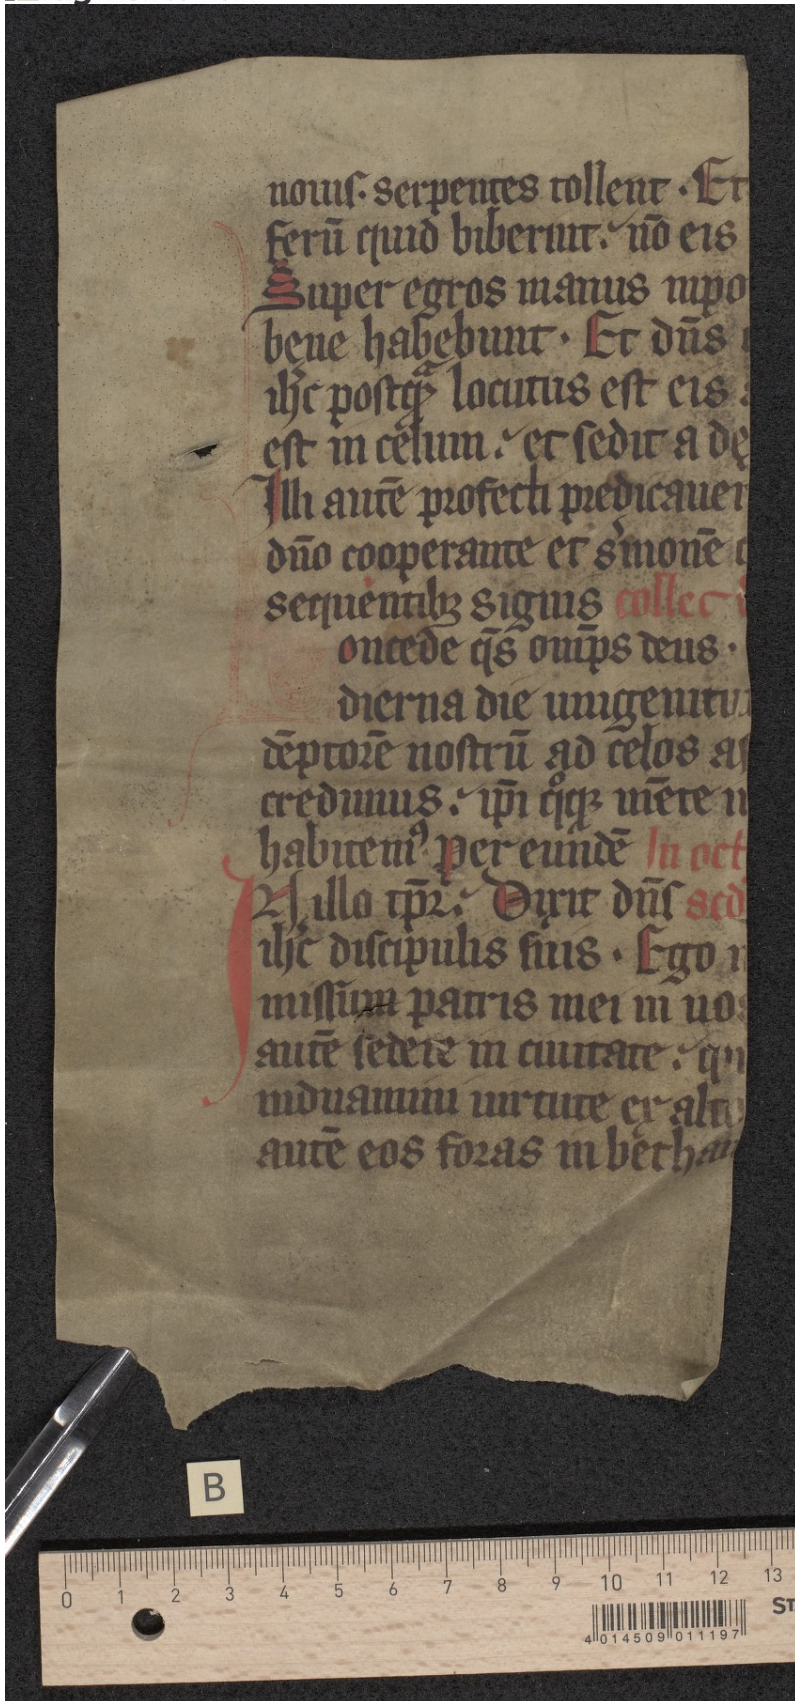 nouis. serpentes tollent . Et
ferū quid biberint: nō eis
Super egros manus inpo
bene habebunt . Et dn̄s
ih̄c postq̄ᵃ locutus est eis
est in celum : et sedit a de
Illi autē profecti predicauer
dn̄o cooperante et s̓monē
sequentibꝫ signis collect
oncede q̄s om̄ps deus .
dierna die unigenitu
dēptorē nostrū ad celos as
credimus : ip̄i qͦqꝫ mēte i
habitemꝰ per eundē In oct
IN illo tp̄r : Dixit dn̄s scd
ih̄c discipulis suis . Ego
missum patris mei in uos
autē sedete in ciuitate : qu
induamini uirtute ex alto
autē eos foras in bethan
B
0 1 2 3 4 5 6 7 8 9 10 11 12 13
ST
4 014509 011197